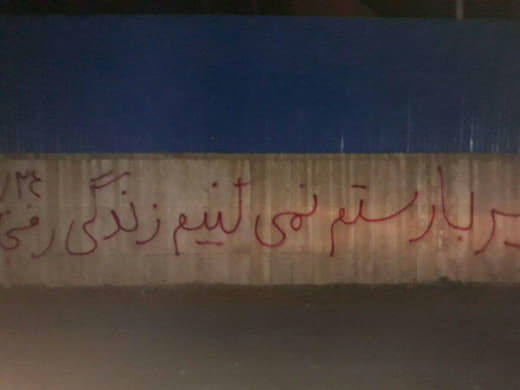 یر بار ستم نمی کنیم زندگی